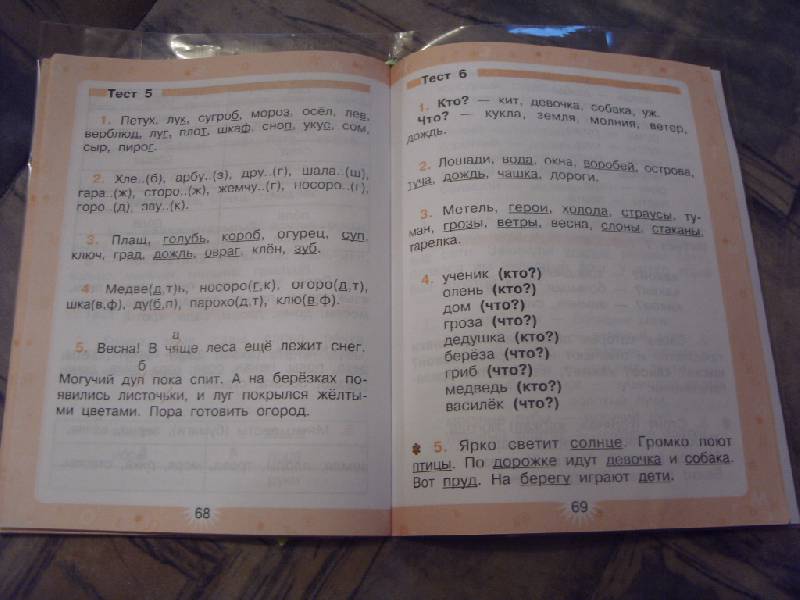 Тест 5
1. Петух, лук, сугроб, мороз, осёл, лев,
верблюд, луг, плот, шкаф, сноп, укус, сом,
сыр, пирог.
2. Хле..(б), арбу..(з), дру..(г), шала..(ш),
гара..(ж), сторо..(ж), жемчу..(г), носоро..(г),
горо..(д), пау..(к).
3. Плащ, голубь, короб, огурец, суп,
ключ, град, дождь, овраг, клён, зуб.
4. Медве(д,т)ь, носоро(г,к), огоро(д,т),
шка(в,ф), ду(б,п), парохо(д,т), клю(в,ф).
а
5. Весна! В чяще леса ещё лежит снег.
б
Могучий дуп пока спит. А на берёзках по-
явились листочьки, и луг покрылся жёлты-
ми цветами. Пора готовить огород.
68
Тест 6
1. Кто? — кит, девочка, собака, уж.
Что? — кукла, земля, молния, ветер,
дождь.
2. Лошади, вода, окна, воробей, острова,
туча, дождь, чашка, дороги.
3. Метель, герои, холода, страусы, ту-
ман, грозы, ветры, весна, слоны, стаканы,
тарелка.
4. ученик (кто?)
олень (кто?)
дом (что?)
гроза (что?)
дедушка (кто?)
берёза (что?)
гриб (что?)
медведь (кто?)
василёк (что?)
5. Ярко светит солнце. Громко поют
птицы. По дорожке идут девочка и собака.
Вот пруд. На берегу играют дети.
69